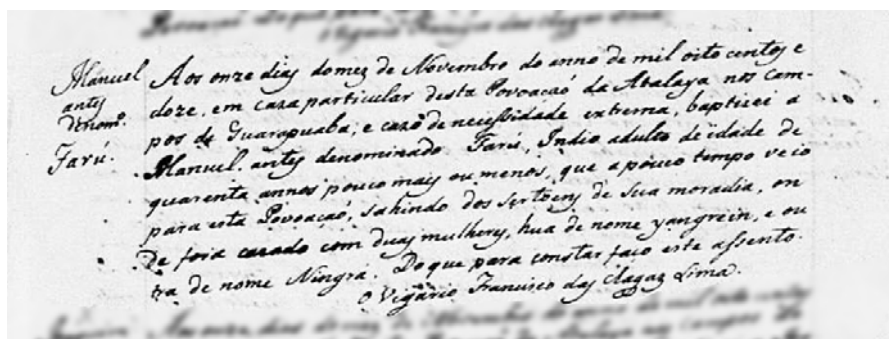 Manuel
antes
denomº.
Farú.
Aos onze dias do mez de Novembro do anno de mil oito centos e
doze, em caza particular desta Povoacaó da Atalaya nos cam-
pos de Guarapuaba; e cazo de necessidade extrema, baptizei a
Manuel. antes denominado Faru, Indio adulto de idade de
quarenta annos pouco mais ou menos, que a pouco tempo veio
para esta Povoacaó, sahindo dos sertoens de Sua moradia, on
de fora cazado com duas mulheres, hua de nome yangrein, e ou
tra de nome Ningrá. Do que para constar faço este assento.
O Vigário Francisco das Chagas Lima.